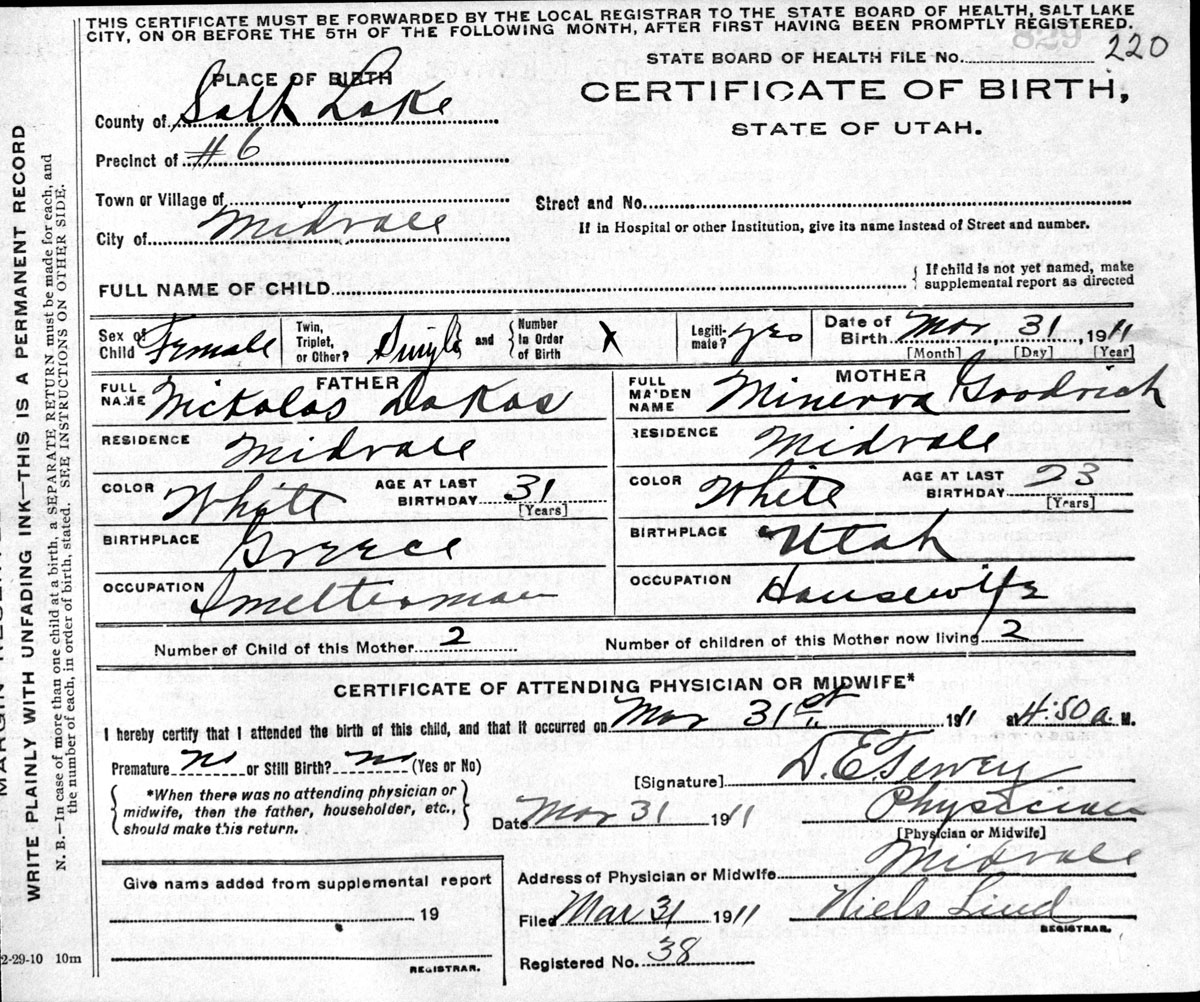 THIS CERTIFICATE MUST BE FORWARDED BY THE LOCAL REGISTRAR TO THE STATE BOARD OF HEALTH, SALT LAKE
CITY, ON OR BEFORE THE 5TH OF THE FOLLOWING MONTH, AFTER FIRST HAVING BEEN PROMPTLY REGISTERED.
829
STATE BOARD OF HEALTH FILE No. 220
PLACE OF BIRTH
CERTIFICATE OF BIRTH,
STATE OF UTAH.
County of Salt Lake
Precinct of #6
Town or Village of
Street and No.
City of Midvale
If in Hospital or other Institution, give its name instead of Street and number.
FULL NAME OF CHILD
{ If child is not yet named, make
supplemental report as directed
Sex of Child Female
Twin, Triplet, or Other? Single and { Number In Order of Birth X
Legiti-mate? yes
Date of Birth Mar, 31, 1911
[Month] [Day] [Year]
FATHER
MOTHER
FULL NAME Nickolas Dakas
FULL MAIDEN NAME Minerva Goodrich
RESIDENCE Midvale
RESIDENCE Midvale
COLOR White AGE AT LAST BIRTHDAY 31 [Years]
COLOR White AGE AT LAST BIRTHDAY 23 [Years]
BIRTHPLACE Greece
BIRTHPLACE Utah
OCCUPATION Smelterman
OCCUPATION Housewife
Number of Child of this Mother 2
Number of children of this Mother now living 2
CERTIFICATE OF ATTENDING PHYSICIAN OR MIDWIFE*
I hereby certify that I attended the birth of this child, and that it occurred on Mar 31st 1911 at 4:50 a. M.
Premature no or Still Birth? no (Yes or No)
[Signature]
Physician
[Physician or Midwife]
*When there was no attending physician or
midwife, then the father, householder, etc.,
should make this return.
Date Mar 31 1911
Address of Physician or Midwife Midvale
Give name added from supplemental report
19
REGISTRAR.
Filed Mar 31 1911
Niels Lind
REGISTRAR.
Registered No. 38
2-29-10 10m
WRITE PLAINLY WITH UNFADING INK—THIS IS A PERMANENT RECORD
N. B.—In case of more than one child at a birth, a SEPARATE RETURN must be made for each, and
the number of each, in order of birth, stated. SEE INSTRUCTIONS ON OTHER SIDE.